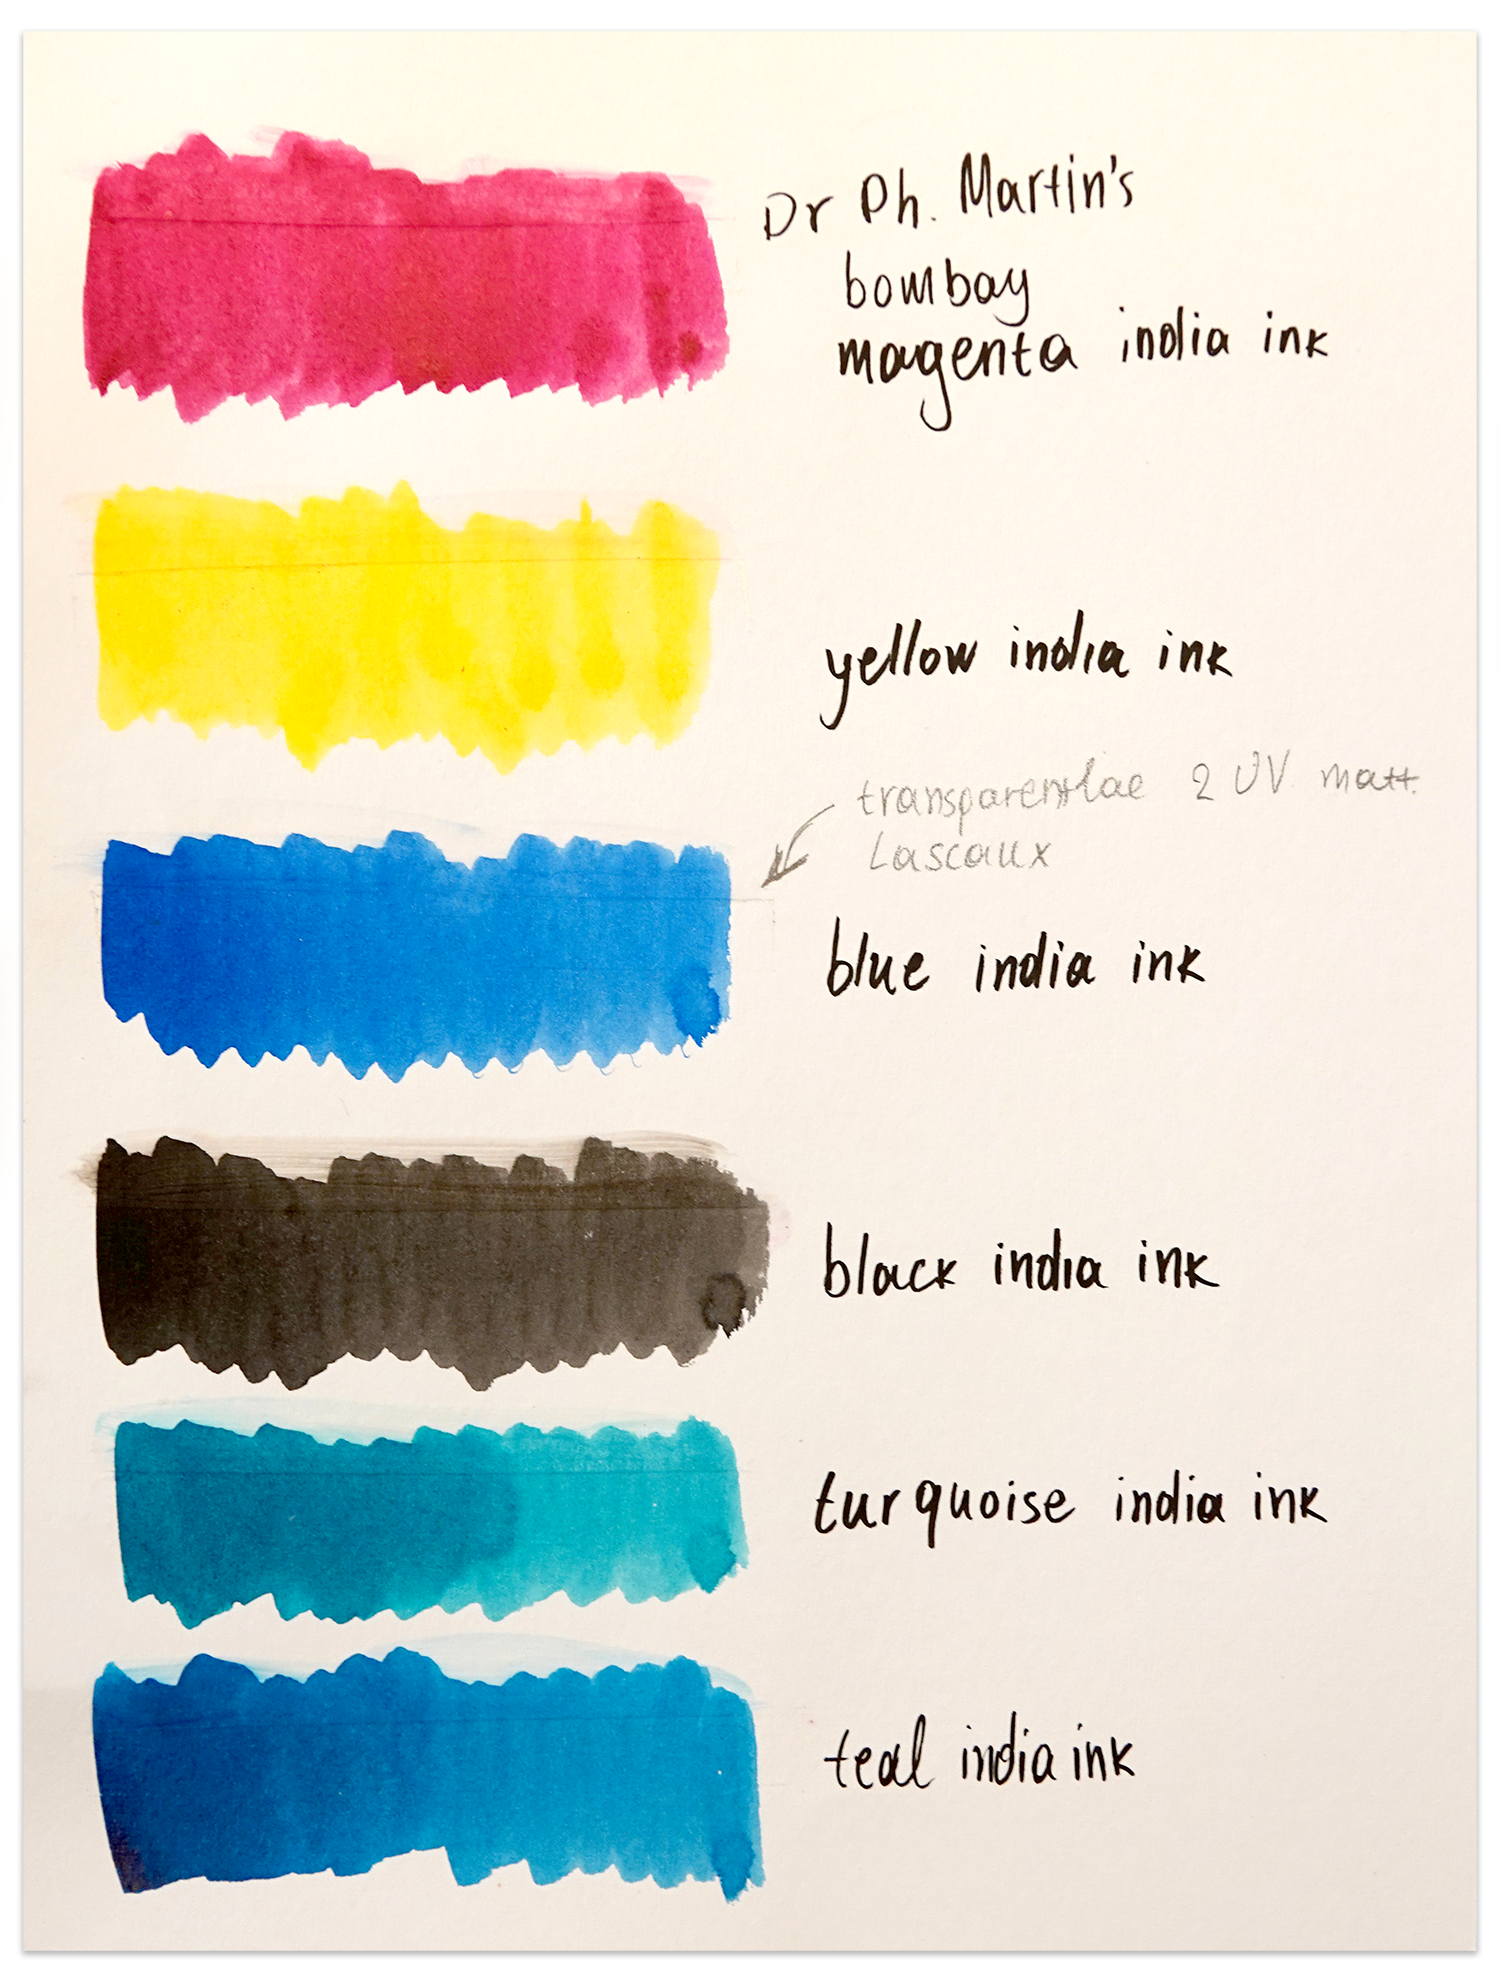 Dr Ph. Martin's
bombay
magenta india ink
yellow india ink
transparentlae 2 UV matt.
Lascaux
blue india ink
black india ink
turquoise india ink
teal india ink